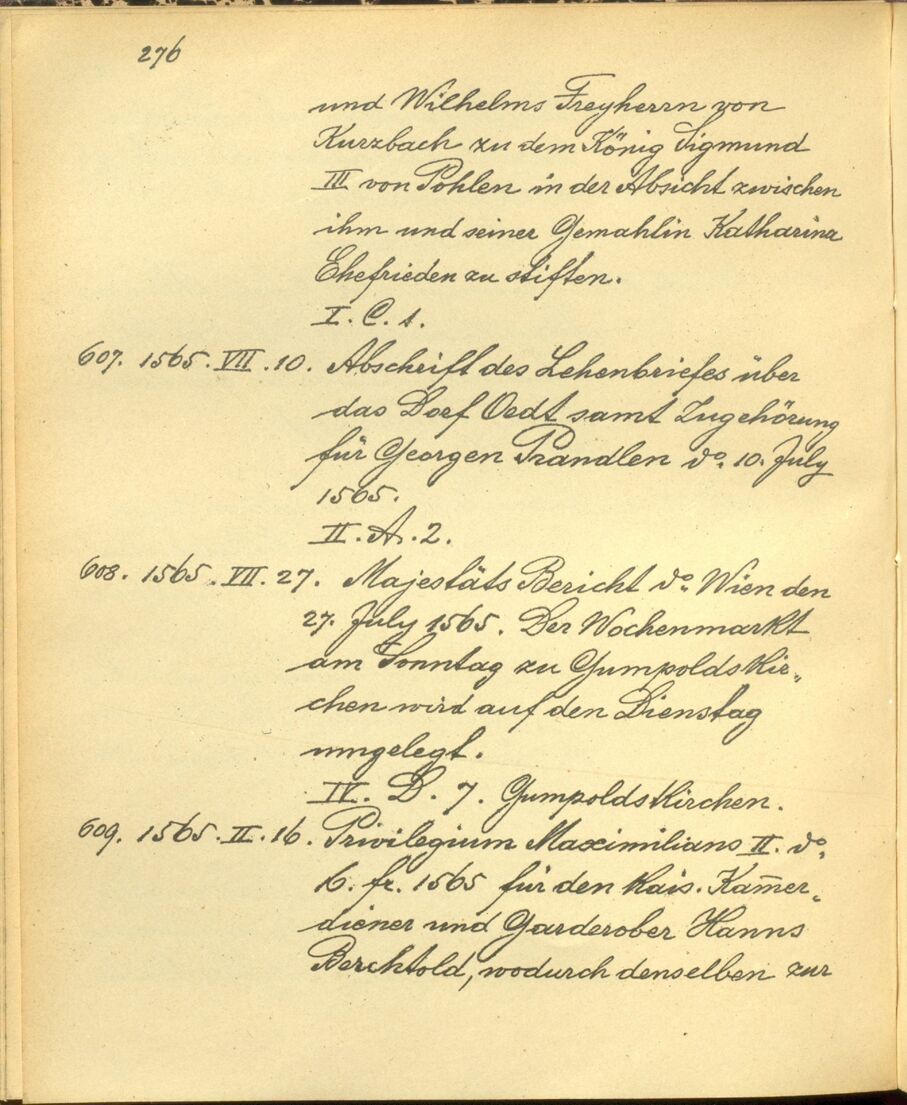 276
und Wilhelms Freyherrn von
Kurzbach zu dem König Sigmund
III von Pohlen in der Absicht zwischen
ihm und seiner Gemahlin Katharina
Ehefrieden zu stiften.
I. C. 1.
607. 1565. VII. 10. Abschrift des Lehenbriefes über
das Dorf Oedt samt Zugehörung
für Georgen Prandlen do. 10. July
1565.
II. A. 2.
608. 1565. VII. 27. Majestäts Bericht do. Wien den
27. July 1565. Der Wochenmarkt
am Sonntag zu Gumpoldskir„
chen wird auf den Dienstag
umgelegt.
IV. D. 7. Gumpoldskirchen.
609. 1565. II. 16. Privilegium Maximilians II. do.
16. fr. 1565 für den kais. Kam̅er„
diener und Garderober Hanns
Berchtold, wodurch denselben zur